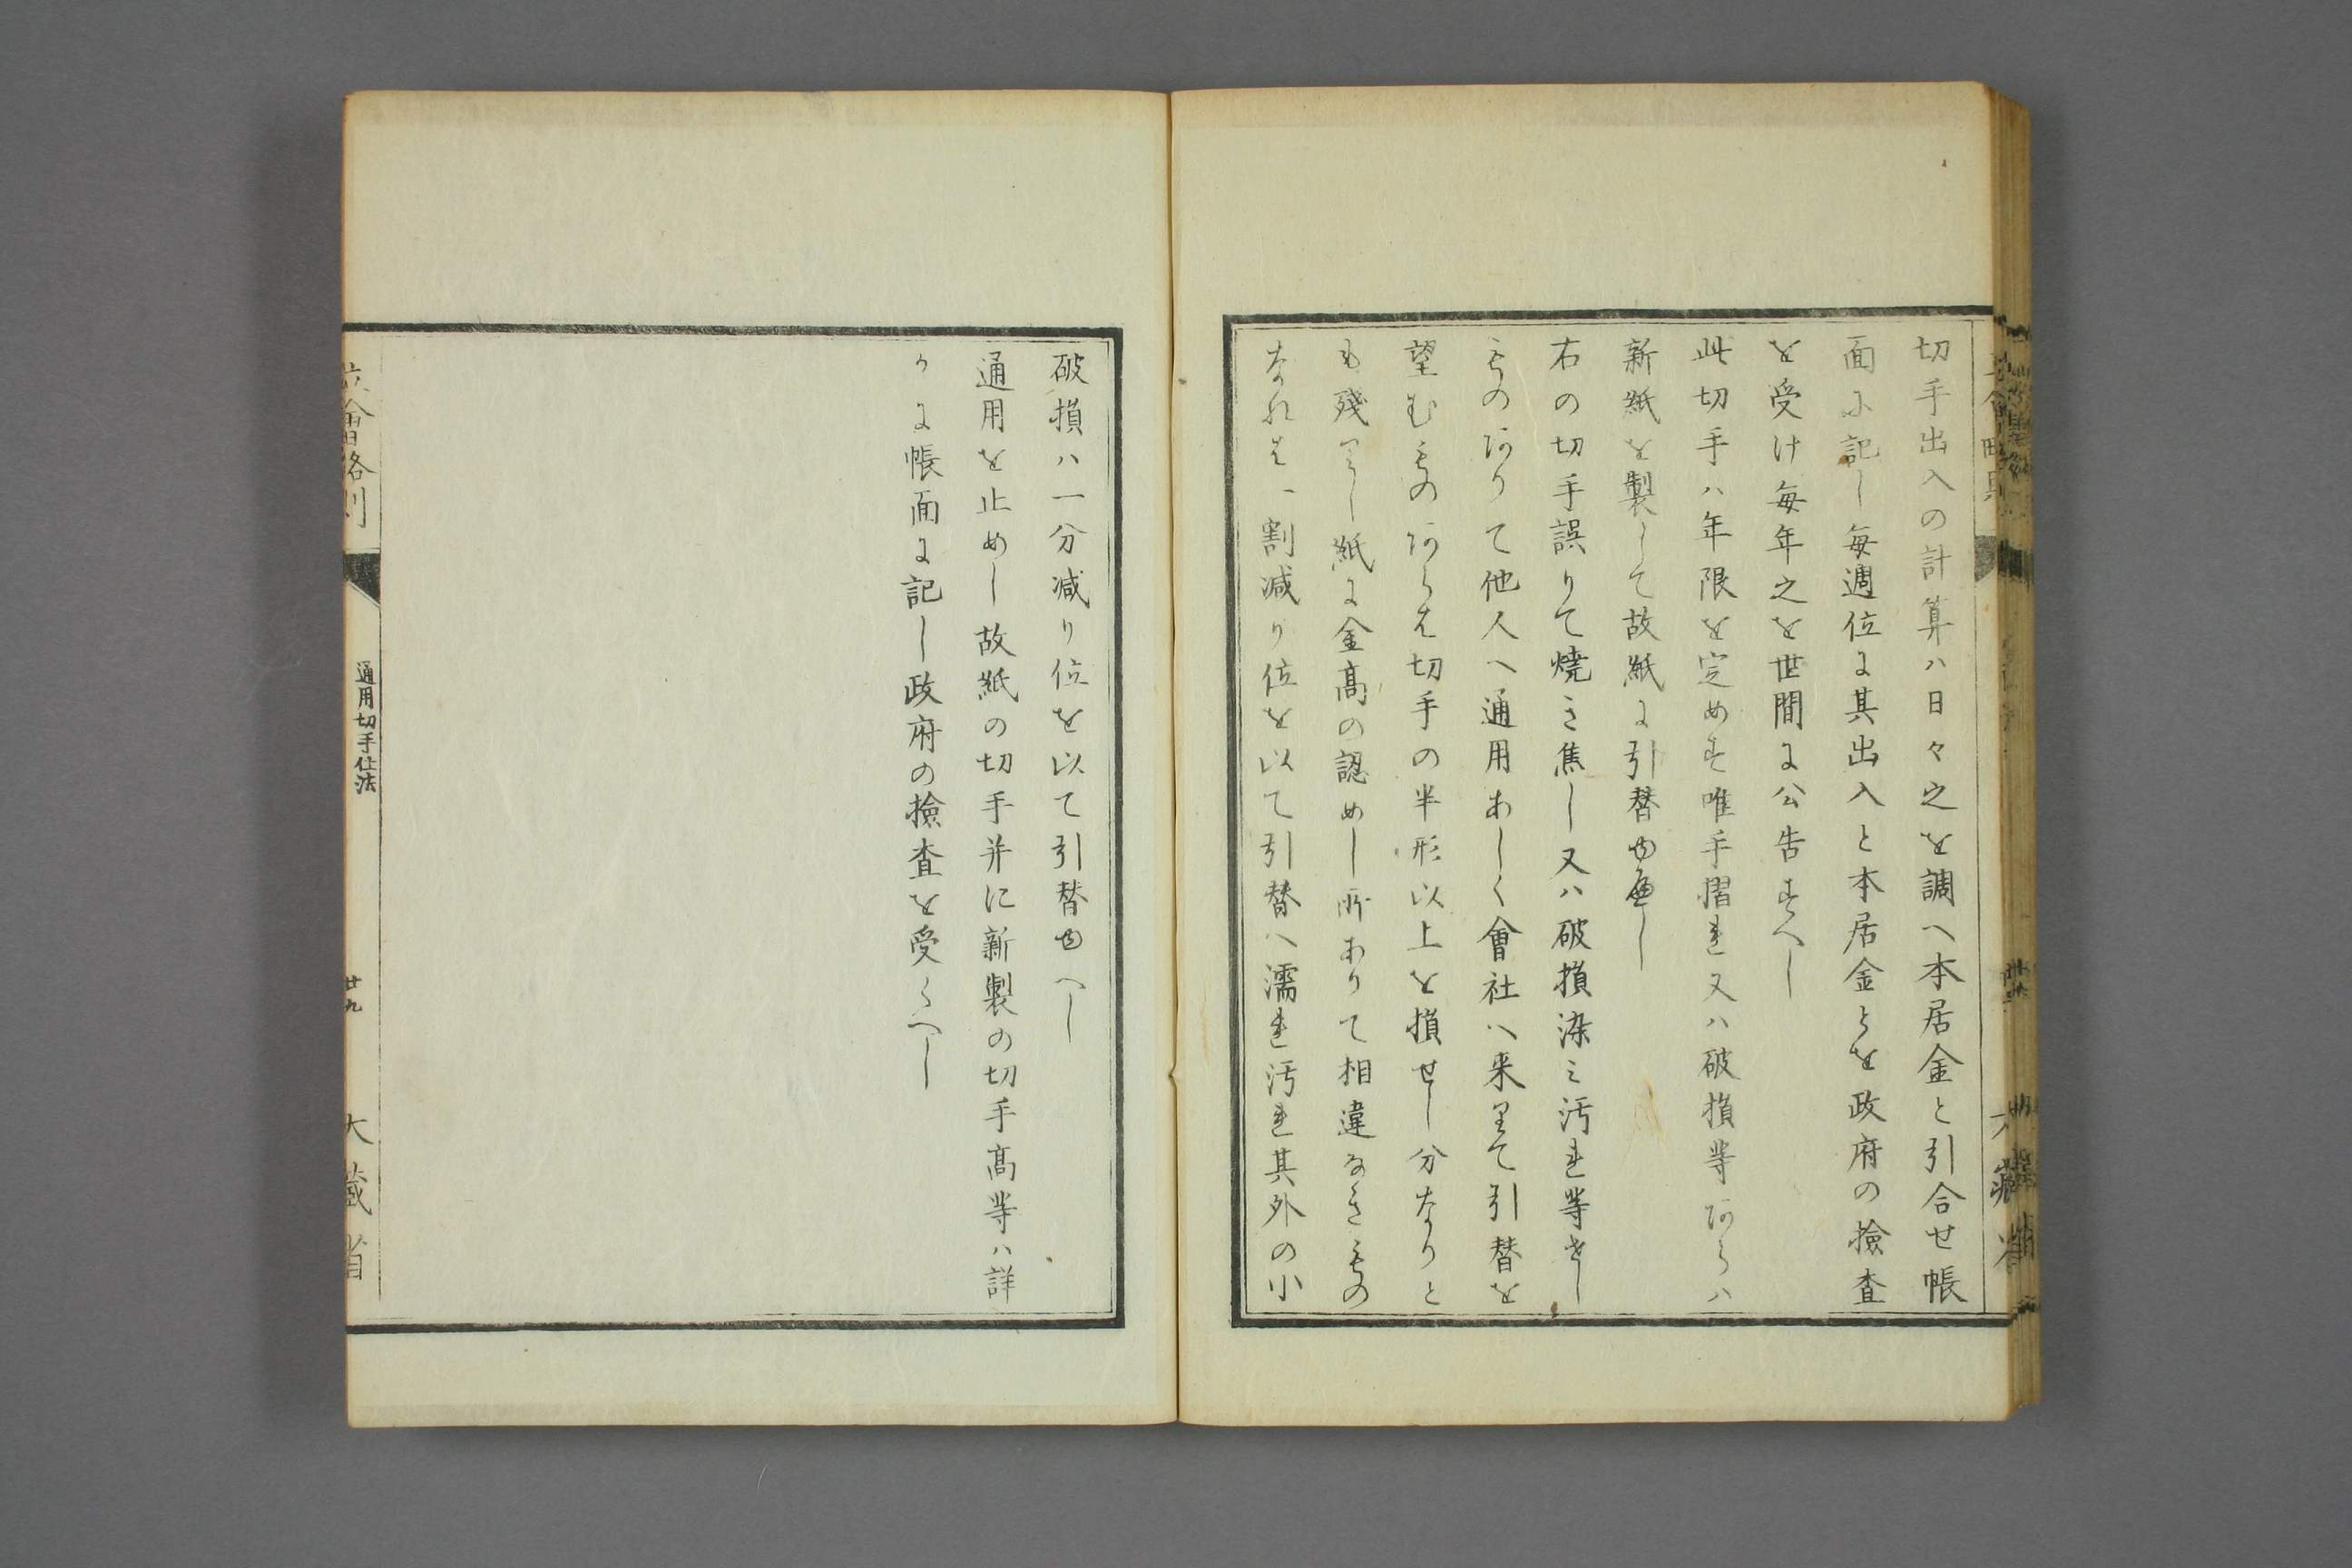 切手出入の計算ハ日々之を調へ本居金と引合せ帳
面に記し毎週位に其出入と本居金とを政府の撿査
を受け毎年之を世間に公告すへし
此切手ハ年限を定めす唯手摺れ又ハ破損等あらハ
新紙を製して故紙に引替ゆ可し
右の切手誤りて焼き焦し又ハ破損染ミ汚れ等せし
ものありて他人へ通用あしく會社へ来りて引替を
望むものあらは切手の半形以上を損せし分なりと
も殘りし紙に金高の認めし所ありて相違なきもの
なれは一割減り位を以て引替へ濡れ汚れ其外の小
破損ハ一分減り位を以て引替ゆへし
通用を止めし故紙の切手并に新製の切手高等ハ詳
かに帳面に記し政府の撿査を受くへし
立會略則
通用切手仕法
廿九
大藏省